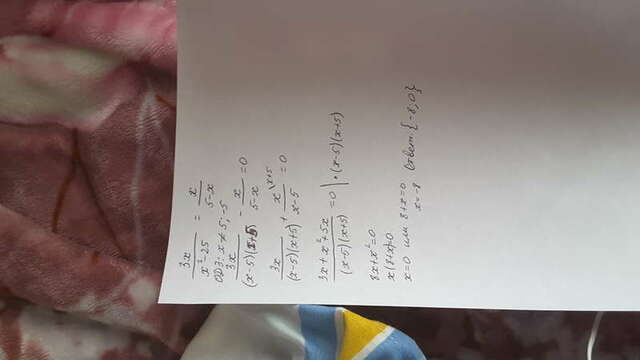 3x/(x²-25) = x/(5-x)
ОДЗ: x ≠ 5; -5
3x/((x-5)(x+5)) - x/(5-x) = 0
3x/((x-5)(x+5)) + x\x+5/(x-5) = 0
(3x+x²+5x)/((x-5)(x+5)) = 0 | •(x-5)(x+5)
8x+x²=0
x(8+x)=0
x=0 или 8+x=0 Ответ: {-8;0}
x=-8